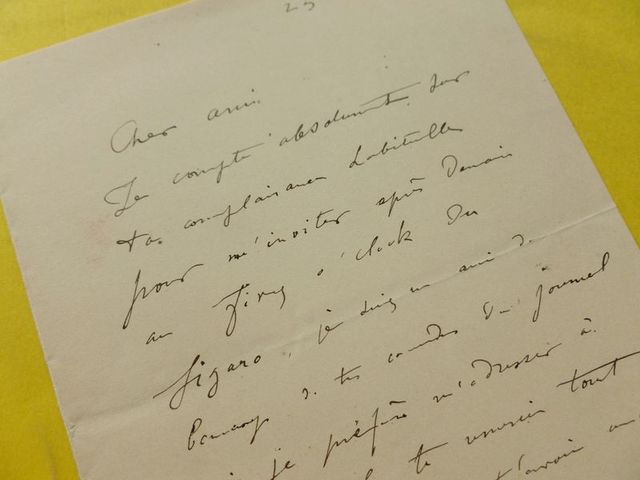 23
Cher ami
Je compte absolument sur
ta complaisance habituelle
pour m'inviter après demain
au five o'clock du
figaro, je suis un ami de
beaucoup de tes camarades du journal
je préfère m'adresser à
te remercier tout
d'avoir